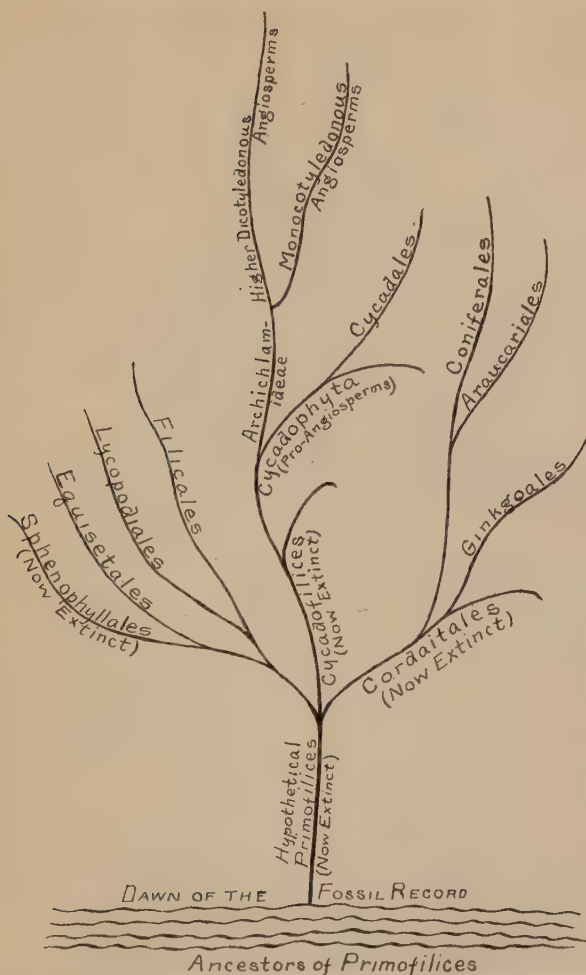 Higher Dicotyledonous
Angiosperms
Monocotyledonous
Angiosperms
Archichlam-
ideae
Cycadales
Cycadophyta
(Pro-Angiosperms)
Coniferales
Araucariales
Filicales
Lycopodiales
Equisetales
Sphenophyllales
(Now Extinct)
Cycadofilices
(Now Extinct)
Ginkgoales
Cordaitales
(Now Extinct)
Hypothetical
Primofilices
(Now Extinct)
DAWN OF THE FOSSIL RECORD
Ancestors of Primofilices